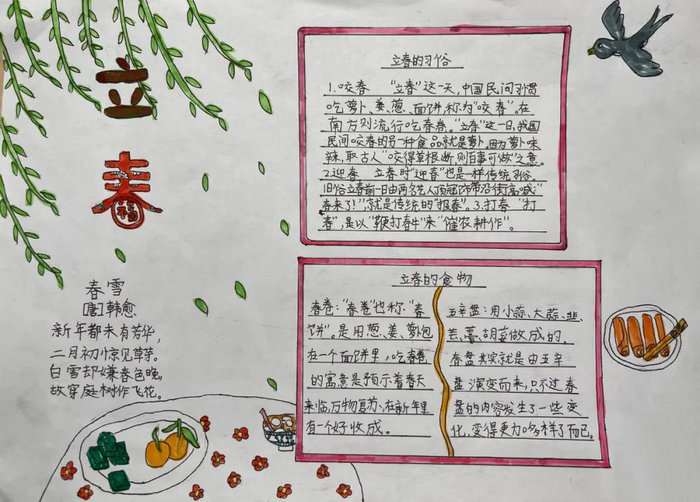 立
春
福
春雪
[唐]韩愈
新年都未有芳华，
二月初惊见草芽。
白雪却嫌春色晚，
故穿庭树作飞花。
立春的习俗
1.咬春 “立春”这一天，中国民间习惯
吃萝卜、姜、葱、面饼称为“咬春”。在
南方则流行吃春卷。“立春”这一日，我国
民间咬春的另一种食品就是萝卜。因为萝卜味
辣，取古人“咬得草根断，则百事可做”之意。
2.迎春 立春时“迎春”也是一样传统习俗。
旧俗立春前一日由两名艺人顶冠饰带沿街高喊“
春来了！”就是传统的“报春”。3.打春 “打
春”，是以“鞭打春牛”来“催农耕作”。
立春的食物
春卷：“春卷”也称“春
饼”。是用葱、姜、萝包
在一个面饼里，吃春卷
的寓意是预示着春天
来临，万物复苏、在新年里
有一个好收成。
五辛盘：用小蒜、大蒜、韭、
芸薹、胡荽做成的。
春盘其实就是由五辛
盘演变而来，只不过春
盘的内容发生了一些变
化，变得更加多样了而已。